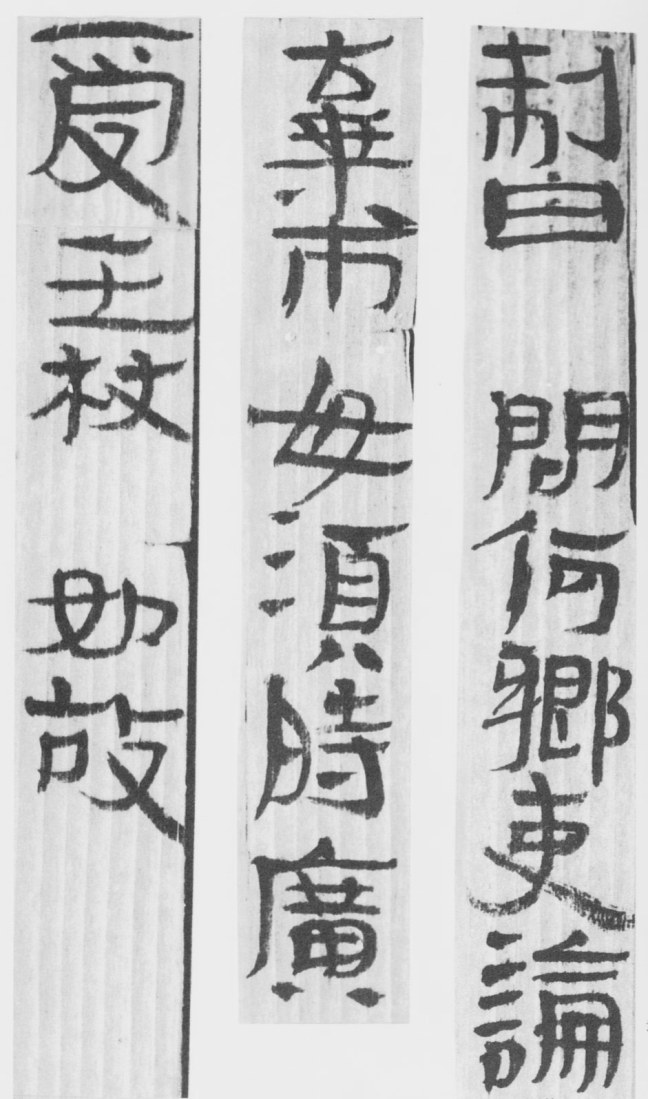 制曰 問何鄉吏論
棄市 毋須時廣
受王杖 如故